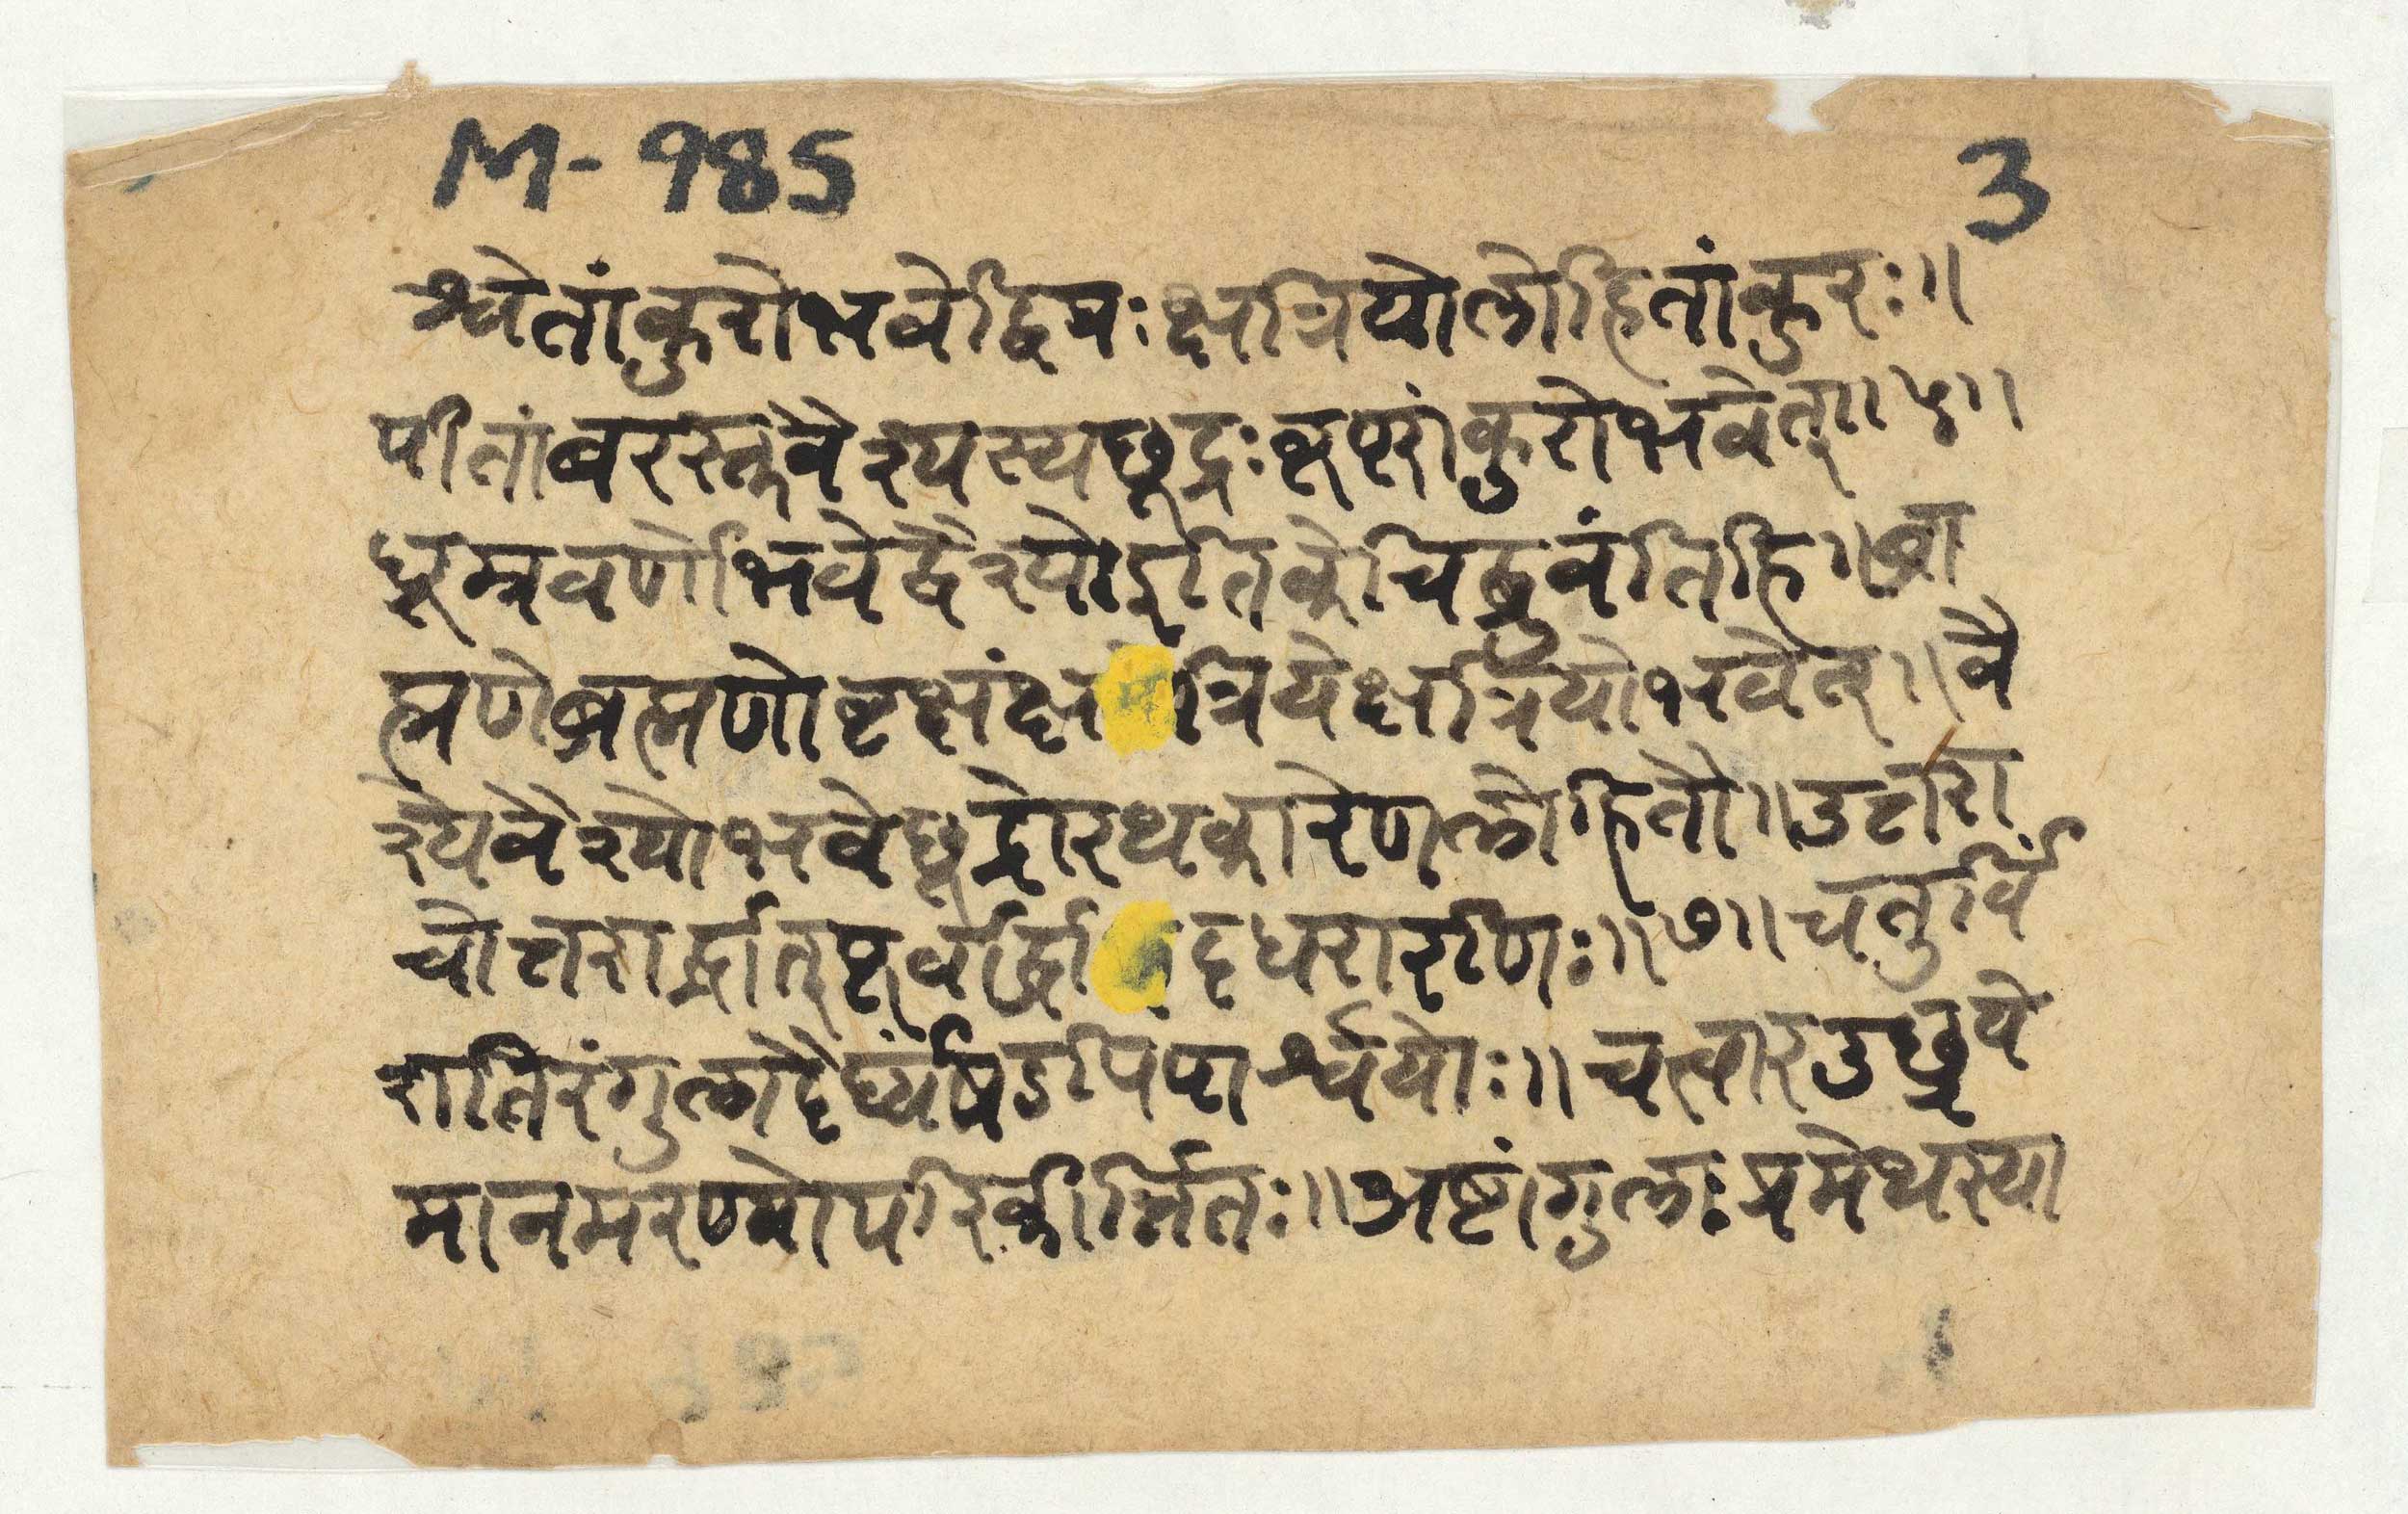 M-985 3
श्वेतांकुरोभवेद्विप्रःक्षत्रियोलोहितांकुरः॥
पीतांबरस्तुवैश्यस्यछूद्रःकृष्णांकुरोभवेत्॥५॥
धूम्रवर्णोभवेद्वैश्योइतिकेचिद्ब्रुवंतिहि॥ब्रा
ह्मणेब्रह्मणोवृक्षंक्षत्रियेक्षत्रियोभवेत्॥वै
श्येवैश्योभवेछूद्रोरथकारेणलोहितो॥उत्तरा
चोत्तरार्द्धात्पूर्वार्द्धादधरारणिः॥७॥चतुर्विं
शतिरंगुलादैर्घ्यंषडपिपार्श्वयोः॥चत्वारउछ्रये
मानमरण्योपरिकीर्त्तितः॥अष्टांगुलःप्रमेथस्या